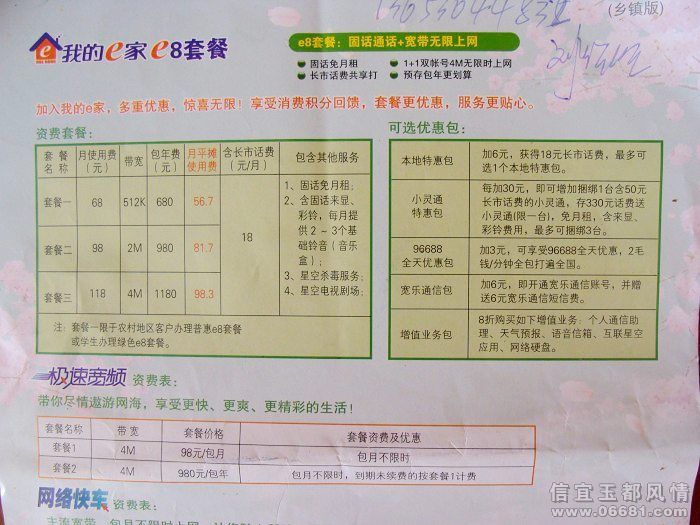 (乡镇版)
我的e家 e8套餐
e8套餐：固话通话+宽带无限上网
固话免月租
1+1双帐号4M无限时上网
长市话费共享打
预存包年更划算
加入我的e家，多重优惠，惊喜无限！享受消费积分回馈，套餐更优惠，服务更贴心。
资费套餐：
套餐名称 月使用费(元) 带宽 包年费(元) 月平摊使用费 含长市话费(元/月) 包含其他服务
套餐一 68 512K 680 56.7
套餐二 98 2M 980 81.7
套餐三 118 4M 1180 98.3
18
1、固话免月租；
2、含固话来显、
彩铃，每月提
供2～3个基
础铃音（音乐
盒）；
3、星空杀毒服务；
4、星空电视剧场；
注：套餐一限于农村地区客户办理普惠e8套餐
或学生办理绿色e8套餐。
可选优惠包：
本地特惠包
加6元，获得18元长市话费，最多可
选1个本地特惠包。
小灵通
特惠包
每加30元，即可增加捆绑1台含50元
长市话费的小灵通，存330元话费送
小灵通(限一台)，免月租，含来显、
彩铃费用，最多可捆绑3台。
96688
全天优惠包
加3元，可享受96688全天优惠，2毛
钱/分钟全包打遍全国。
宽乐通信包
加6元，即开通宽乐通信账号，并赠
送6元宽乐通信短信费。
增值业务包
8折购买如下增值业务：个人通信助
理、天气预报、语音信箱、互联星空
应用、网络硬盘。
极速宽频 资费表：
带你尽情遨游网海，享受更快、更爽、更精彩的生活！
套餐名称 带宽 套餐价格 套餐资费及优惠
套餐1 4M 98元/包月 包月不限时
套餐2 4M 980元/包年 包月不限时，到期未续费的按套餐1计费
网络快车 资费表：
信宜玉都风情
www.06681.com